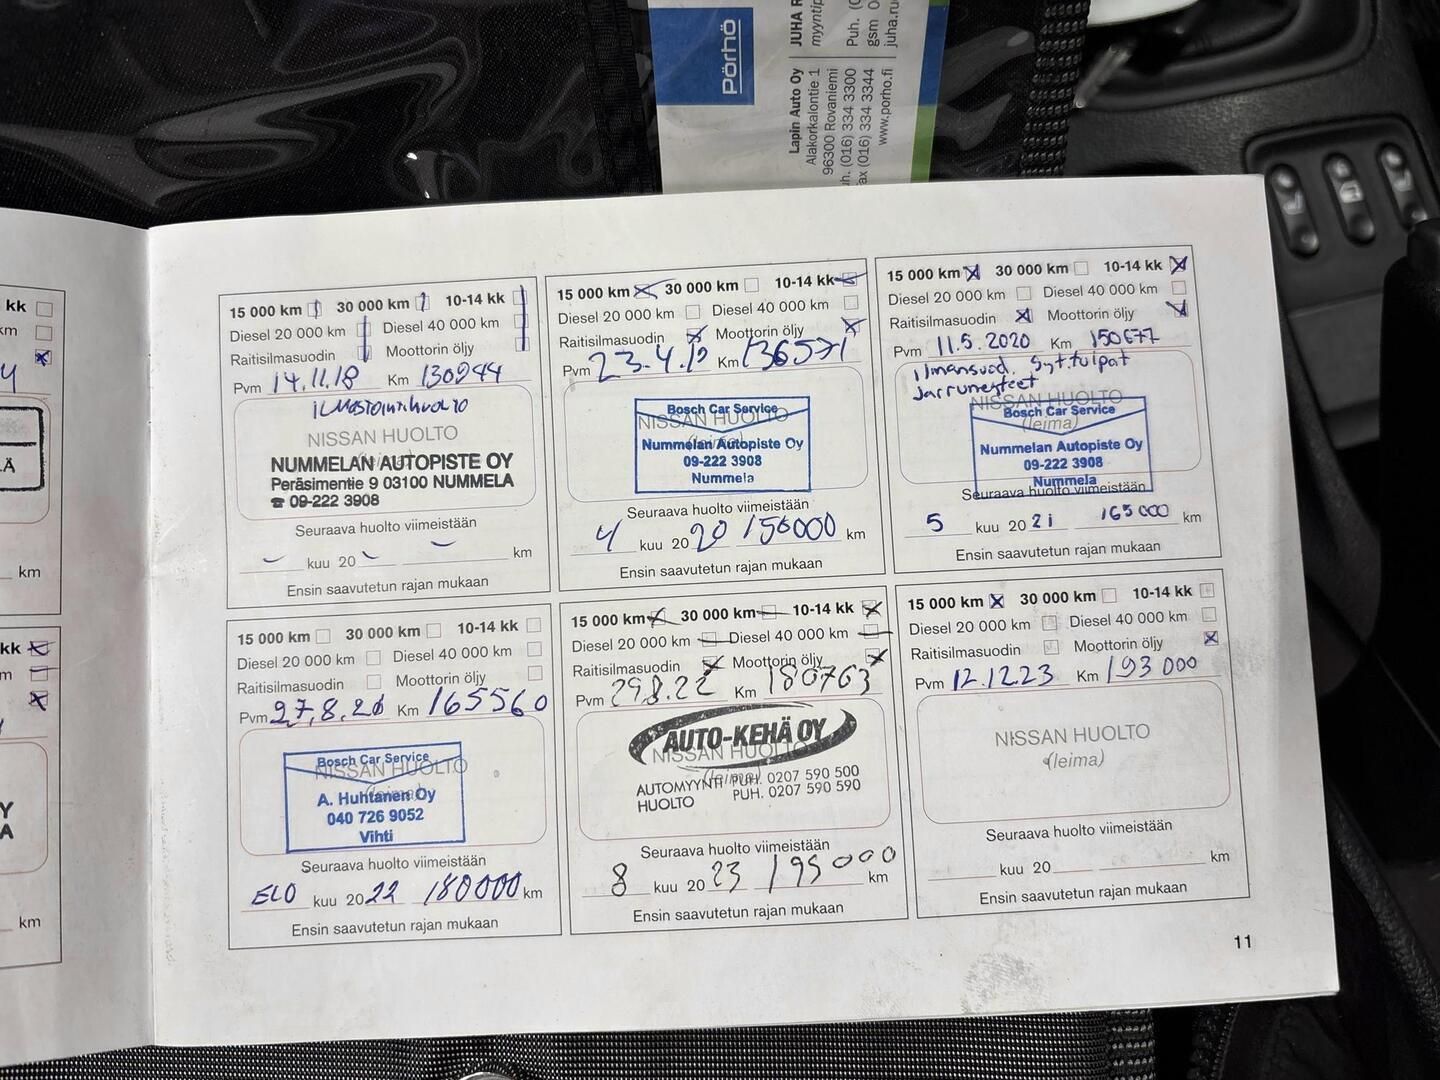 Pörhö
Lapin Auto Oy
Alakorkalontie 1
96300 Rovaniemi
uh. (016) 334 3300
ax (016) 334 3344
www.porho.fi
JUHA R
myyntip
Puh. (0
gsm 0
juha.ru
kk
km
4
Ä
km
kk
m
Y
A
km
15 000 km 30 000 km 10-14 kk
Diesel 20 000 km Diesel 40 000 km
Raitisilmasuodin Moottorin öljy
Pvm 14.11.18 Km 130944
ilmastointihuolto
NISSAN HUOLTO
(leima)
NUMMELAN AUTOPISTE OY
Peräsimentie 9 03100 NUMMELA
☎ 09-222 3908
Seuraava huolto viimeistään
- kuu 20 - - km
Ensin saavutetun rajan mukaan
15 000 km 30 000 km 10-14 kk
Diesel 20 000 km Diesel 40 000 km
Raitisilmasuodin Moottorin öljy
Pvm 23.4.19 Km 136571
Bosch Car Service
NISSAN HUOLTO
(leima)
Nummelan Autopiste Oy
09-222 3908
Nummela
Seuraava huolto viimeistään
4 kuu 2020 150000 km
Ensin saavutetun rajan mukaan
15 000 km 30 000 km 10-14 kk
Diesel 20 000 km Diesel 40 000 km
Raitisilmasuodin Moottorin öljy
Pvm 11.5.2020 Km 150677
ilmansuod. Syt.tulpat
Jarrunesteet
NISSAN HUOLTO
Bosch Car Service
(leima)
Nummelan Autopiste Oy
09-222 3908
Nummela
Seuraava huolto viimeistään
5 kuu 2021 165000 km
Ensin saavutetun rajan mukaan
15 000 km 30 000 km 10-14 kk
Diesel 20 000 km Diesel 40 000 km
Raitisilmasuodin Moottorin öljy
Pvm 27.8.21 Km 165560
Bosch Car Service
NISSAN HUOLTO
(leima)
A. Huhtanen Oy
040 726 9052
Vihti
Seuraava huolto viimeistään
ELO kuu 2022 180000 km
Ensin saavutetun rajan mukaan
15 000 km 30 000 km 10-14 kk
Diesel 20 000 km Diesel 40 000 km
Raitisilmasuodin Moottorin öljy
Pvm 29.8.22 Km 180763
AUTO-KEHÄ OY
NISSAN HUOLTO
(leima)
AUTOMYYNTI PUH. 0207 590 500
HUOLTO PUH. 0207 590 590
Seuraava huolto viimeistään
8 kuu 2023 195000 km
Ensin saavutetun rajan mukaan
15 000 km 30 000 km 10-14 kk
Diesel 20 000 km Diesel 40 000 km
Raitisilmasuodin Moottorin öljy
Pvm 12.12.23 Km 193 000
NISSAN HUOLTO
(leima)
Seuraava huolto viimeistään
kuu 20 km
Ensin saavutetun rajan mukaan
11